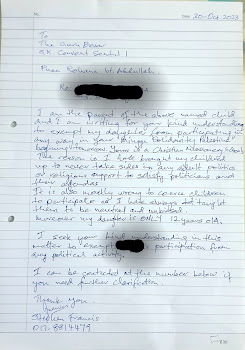 DATE: 20-Oct 2023
To
The Guru Besar
SK Convent Sentul 1
Puan Rohana bt. Abdullah
Re
I am the parent of the above named child
and I am writing for your kind understanding
to exempt my daughter from participating in
any way in your Minggu Solidariti Palestine
The reason is I have brought my children
up to never take sides in any adult politics
or religious support to satisfy politicians and
their agendas.
It is also morally wrong to coerce children
to participate as I have always taught
them to be neutral and unbiased.
Moreover my daughter is ONLY 12 years old.
I seek your kind understanding in this
matter to exempt participation from
any political activity.
I can be contacted at this number below if
you need further clarification.
Thank you.
Stephen Francis
017. 8814479